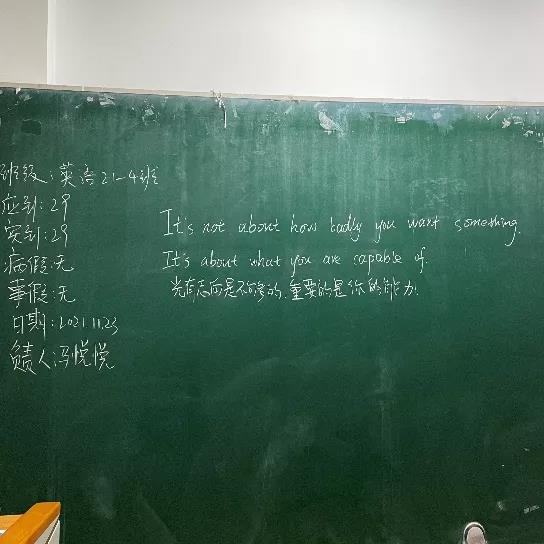 班级:英语21-4班
应到:29
实到:29
病假:无
事假:无
日期:2021.11.23
负责人:冯悦悦
It's not about how badly you want something.
It's about what you are capable of.
光有志向是不够的,重要的是你的能力.